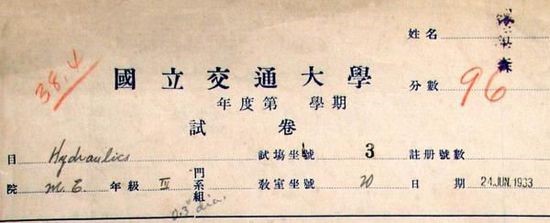 姓名
38.4
國立交通大學
分數 96
年度第 學期
試卷
目 Hydraulics 試場坐號 3 註册號數
院 M.E. 年級 IV 門系組 教室坐號 20 日期 24 JUN. 1933
0.3" dia.